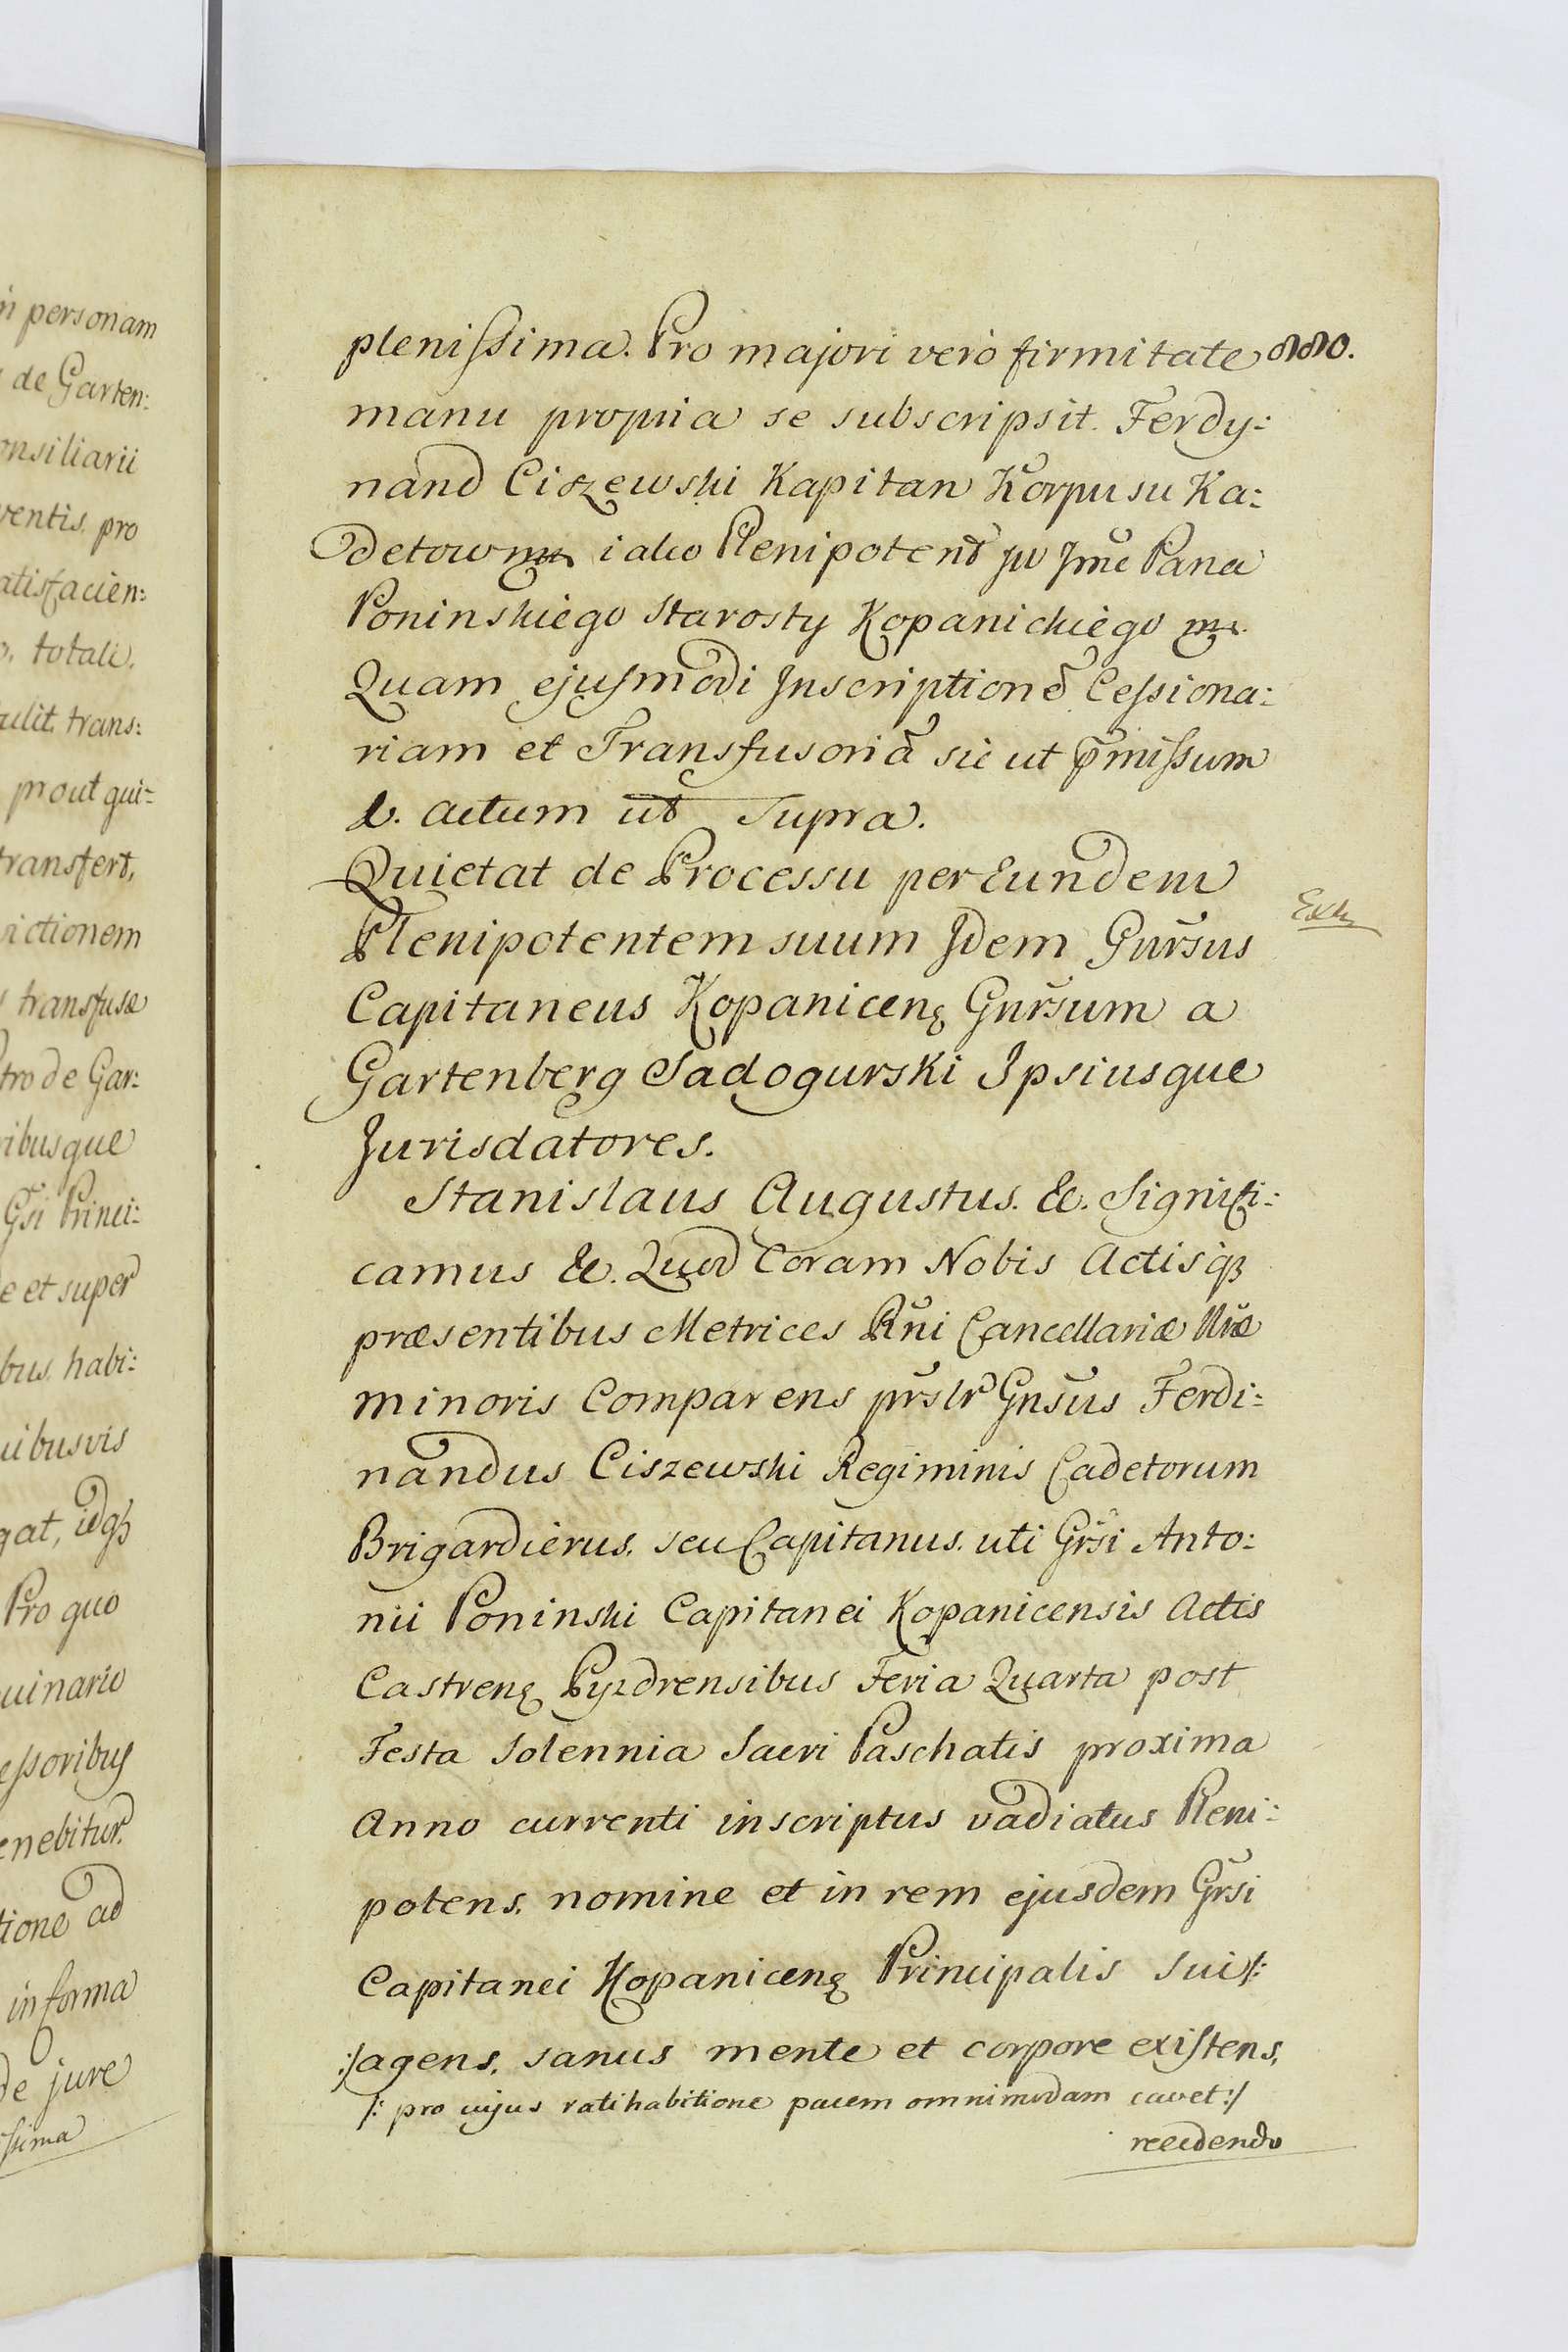 in personam
de Garten:
onsiliarii
ventis. pro
atisfacien:
o. totali.
tulit. trans:
prout qui:
transfert,
victionem
transfusæ
tro de Gar:
ribusque
Gsi Princi:
e et super
bus. habi:
uibusvis
gat, idqꝫ
Pro quo
uinario
eſsoribus
enebitur.
tione ad
in forma
de jure
ſsima
880.
pleniſsima. Pro majori verò firmitate
manu propria se subscripsit. Ferdy:
nand Ciszewski Kapitan Korpusu Ka:
detow mp iako Plenipotent JW Jmc Pana
Poninskiego Starosty Kopanickiego mp.
Quam ejusmodi Inscriptionē Ceſsiona:
riam et Transfusoriā sic ut p̄miſsum
&. actum ut Supra.
Quietat de Processu per Eundem
Plenipotentem suum Idem Gnrsus
Exh
Capitaneus Kopanicenꝫ Gnrsum a
Gartenberg Sadogurski Ipsiusque
Jurisdatores.
Stanislaus Augustus. &c. Signifi:
camus &c. Quod Coram Nobis Actisqꝫ
præsentibus Metrices Rñi Cancellariæ Nræ
minoris Comparens prslr Gnsus Ferdi:
nandus Ciszewski Regiminis Cadetorum
Brigardierus. seu Capitanus. uti Grsi Anto:
nii Poninski Capitanei Kopanicensis Actis
Castrenꝫ Pyzdrensibus Feria Quarta post
Festa Solennia Sacri Paschatis proxima
Anno currenti inscriptus vadiatus Pleni:
potens. nomine et in rem ejusdem Grsi
Capitanei Kopanicenꝫ Principalis Sui /:
:/ agens. sanus mente et corpore exiſtens.
/: pro cujus ratihabitione pacem omnimodam cavet :/
recedendo